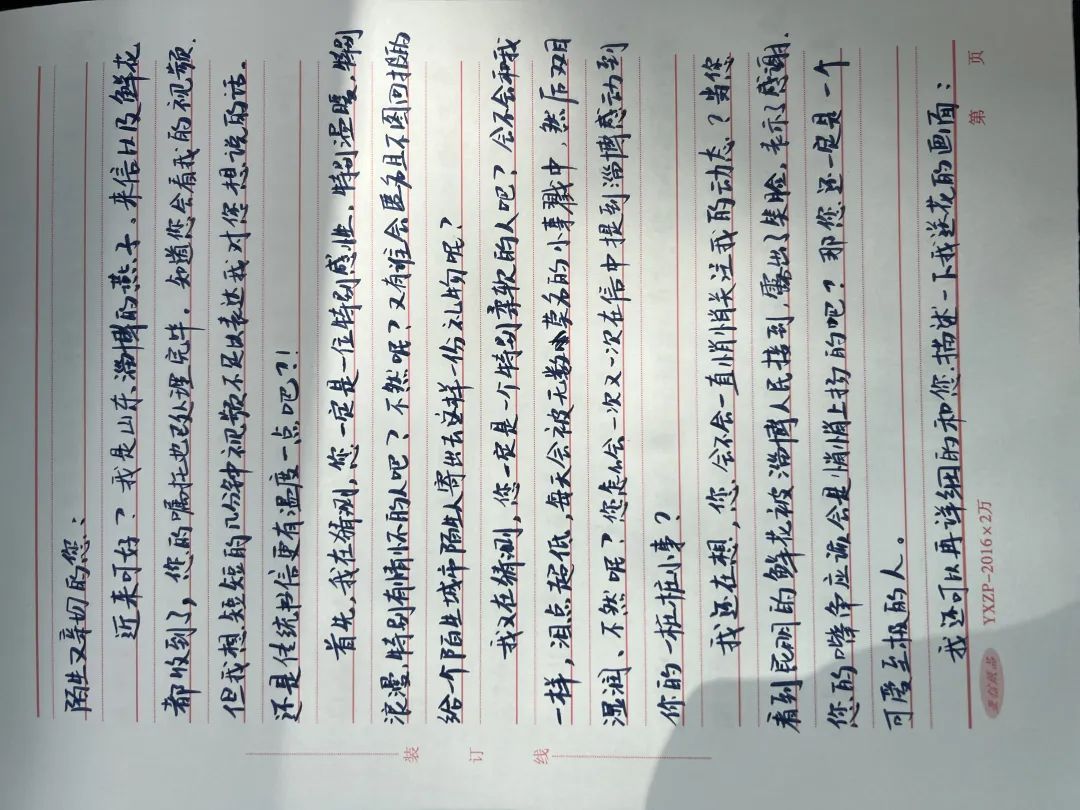 陌生又亲切的您：
近来可好？我是山东淄博的燕子、来信以及鲜花
都收到了，您的嘱托也已处理完毕。知道您会看我的视频.
但我想短短的几分钟视频不足以表达我对您想说的话。
还是传统书信更有温度一点吧？！
首先，我在猜测，您一定是一位特别感性、特别温暖、特别
浪漫，特别有情怀的人吧？不然呢？又有谁会匿名且不图回报的
给一个陌生城市陌生人寄出去这样一份礼物呢？
我又在猜测，您一定是一个特别柔软的人吧？会不会和我
一样，泪点超低，每天会被无数莫名的小事戳中，然后双目
湿润、不然呢？您怎么会一次又一次在信中提到淄博感动到
你的一桩桩小事？
我还在想，您，会不会一直悄悄关注我的动态？当您
看到昆明的鲜花被淄博人民接到，露出了笑脸、表示了感谢.
您的嘴角应该会是悄悄上扬的吧？那您还一定是一个
可爱至极的人。
我还可以再详细的和您描述一下我送花的画面：
装 订 线
YXZP-2016×2万
第 页